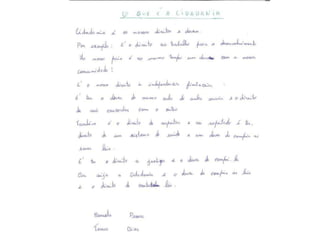 O QUE É A CIDADANIA
Cidadania é os nossos direitos e deveres.
Por exemplo: É o direito ao trabalho para o desenvolvimento
do nosso país e ao mesmo tempo um dever com a nossa
comunidade!
É o nosso direito à independência financeira.
É ter o dever do mesmo modo de outro
de nos com o outro
Também é o direito de respeitar e ser respeitado é ter
direito de um sistema de saúde e um dever de cumprir as
suas leis.
É ter o direito à justiça e o dever de cumpri-la.
Ou seja a cidadania é o dever de cumprir as leis
e o direito de lei.
Manuela
Tânia Dias